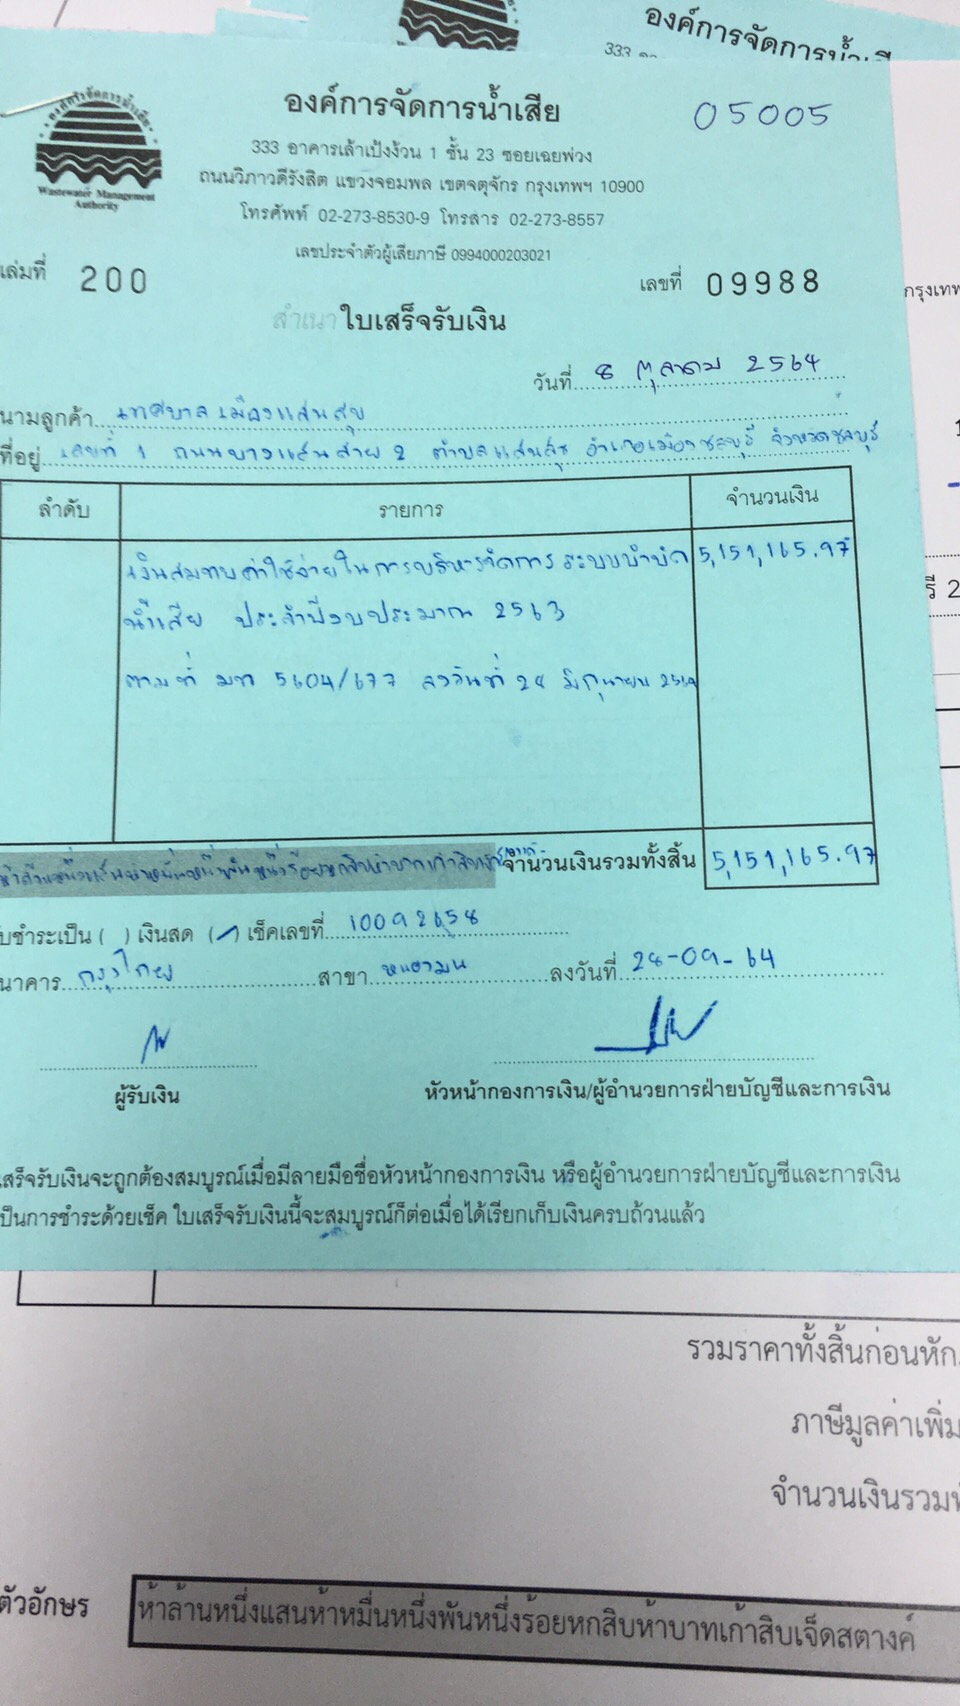 องค์การจัดการน้ำเสีย
333
องค์การจัดการน้ำเสีย
05005
Wastewater Management
Authority
333 อาคารเล้าเป้งง้วน 1 ชั้น 23 ซอยเฉยพ่วง
ถนนวิภาวดีรังสิต แขวงจอมพล เขตจตุจักร กรุงเทพฯ 10900
โทรศัพท์ 02-273-8530-9 โทรสาร 02-273-8557
เลขประจำตัวผู้เสียภาษี 0994000203021
เล่มที่ 200
เลขที่ 09988
กรุงเทพ
สำเนา ใบเสร็จรับเงิน
วันที่ 8 ตุลาคม 2564
นามลูกค้า เทศบาลเมืองแสนสุข
ที่อยู่ เลขที่ 1 ถนนบางแสนสาย 2 ตำบลแสนสุข อำเภอเมืองชลบุรี จังหวัดชลบุรี
ลำดับ รายการ จำนวนเงิน
เงินสมทบค่าใช้จ่ายในการบริหารจัดการระบบบำบัด 5,151,165.97
น้ำเสีย ประจำปีงบประมาณ 2563
ตามที่ มท 5604/677 ลงวันที่ 28 มิถุนายน 2564
จำนวนเงินรวมทั้งสิ้น 5,151,165.97
รับชำระเป็น ( ) เงินสด (/) เช็คเลขที่ 10092658
นาคาร กรุงไทย สาขา หนองมน ลงวันที่ 28-09-64
ผู้รับเงิน
หัวหน้ากองการเงิน/ผู้อำนวยการฝ่ายบัญชีและการเงิน
เสร็จรับเงินจะถูกต้องสมบูรณ์เมื่อมีลายมือชื่อหัวหน้ากองการเงิน หรือผู้อำนวยการฝ่ายบัญชีและการเงิน
เป็นการชำระด้วยเช็ค ใบเสร็จรับเงินนี้จะสมบูรณ์ก็ต่อเมื่อได้เรียกเก็บเงินครบถ้วนแล้ว
รวมราคาทั้งสิ้นก่อนหัก
ภาษีมูลค่าเพิ่ม
จำนวนเงินรวม
ตัวอักษร ห้าล้านหนึ่งแสนห้าหมื่นหนึ่งพันหนึ่งร้อยหกสิบห้าบาทเก้าสิบเจ็ดสตางค์